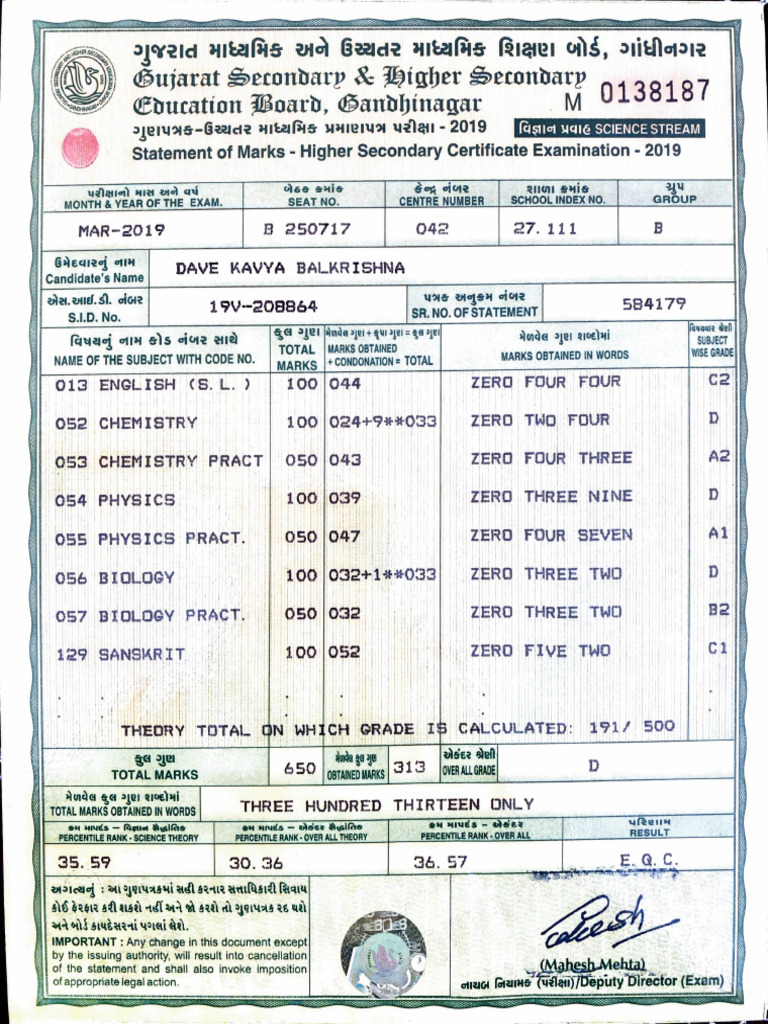 ગુજરાત માધ્યમિક અને ઉચ્ચતર માધ્યમિક શિક્ષણ બોર્ડ, ગાંધીનગર
Gujarat Secondary & Higher Secondary
Education Board, Gandhinagar
M 0138187
ગુણપત્રક-ઉચ્ચતર માધ્યમિક પ્રમાણપત્ર પરીક્ષા - 2019 વિજ્ઞાન પ્રવાહ SCIENCE STREAM
Statement of Marks - Higher Secondary Certificate Examination - 2019
પરીક્ષાનો માસ અને વર્ષ બેઠક ક્રમાંક કેન્દ્ર નંબર શાળા ક્રમાંક ગ્રુપ
MONTH & YEAR OF THE EXAM. SEAT NO. CENTRE NUMBER SCHOOL INDEX NO. GROUP
MAR-2019 B 250717 042 27.111 B
ઉમેદવારનું નામ
Candidate's Name DAVE KAVYA BALKRISHNA
એસ.આઈ.ડી. નંબર પત્રક અનુક્રમ નંબર
S.I.D. No. 19V-208864 SR. NO. OF STATEMENT 584179
વિષયનું નામ કોડ નંબર સાથે કુલ ગુણ મેળવેલ ગુણ + કૃપા ગુણ = કુલ ગુણ મેળવેલ ગુણ શબ્દોમાં વિષયવાર શ્રેણી
NAME OF THE SUBJECT WITH CODE NO. TOTAL MARKS MARKS OBTAINED + CONDONATION = TOTAL MARKS OBTAINED IN WORDS SUBJECT WISE GRADE
013 ENGLISH (S.L.) 100 044 ZERO FOUR FOUR C2
052 CHEMISTRY 100 024+9**033 ZERO TWO FOUR D
053 CHEMISTRY PRACT 050 043 ZERO FOUR THREE A2
054 PHYSICS 100 039 ZERO THREE NINE D
055 PHYSICS PRACT. 050 047 ZERO FOUR SEVEN A1
056 BIOLOGY 100 032+1**033 ZERO THREE TWO D
057 BIOLOGY PRACT. 050 032 ZERO THREE TWO B2
129 SANSKRIT 100 052 ZERO FIVE TWO C1
THEORY TOTAL ON WHICH GRADE IS CALCULATED: 191/ 500
કુલ ગુણ મેળવેલ કુલ ગુણ એકંદર શ્રેણી
TOTAL MARKS 650 OBTAINED MARKS 313 OVER ALL GRADE D
મેળવેલ કુલ ગુણ શબ્દોમાં
TOTAL MARKS OBTAINED IN WORDS THREE HUNDRED THIRTEEN ONLY
ક્રમ માપદંડ – વિજ્ઞાન સૈદ્ધાંતિક ક્રમ માપદંડ – એકંદર સૈદ્ધાંતિક ક્રમ માપદંડ – એકંદર પરિણામ
PERCENTILE RANK - SCIENCE THEORY PERCENTILE RANK - OVER ALL THEORY PERCENTILE RANK - OVER ALL RESULT
35.59 30.36 36.57 E.Q.C.
અગત્યનું : આ ગુણપત્રકમાં સહી કરનાર સત્તાધિકારી સિવાય
કોઈ ફેરફાર કરી શકશે નહીં અને જો કરશે તો ગુણપત્રક રદ થશે
અને બોર્ડ કાયદેસરનાં પગલાં લેશે.
IMPORTANT : Any change in this document except
by the issuing authority, will result into cancellation
of the statement and shall also invoke imposition
of appropriate legal action.
(Mahesh Mehta)
નાયબ નિયામક (પરીક્ષા)/Deputy Director (Exam)